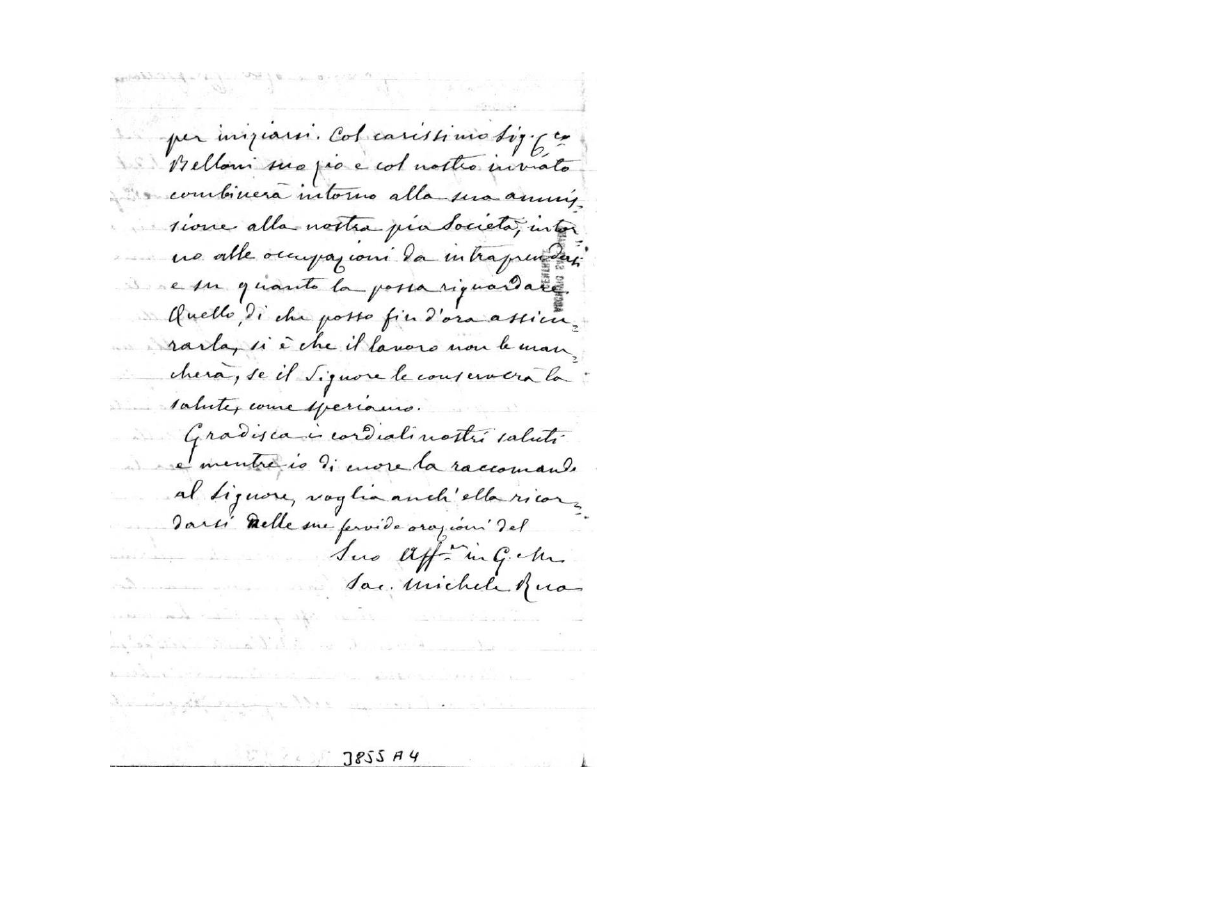 per iniziarsi. Col carissimo Sig. Cco
Belloni suo zio e col nostro inviato
combinerà intorno alla sua ammis-
sione alla nostra pia Società, intor-
no alle occupazioni da intraprendersi
e su quanto la possa riguardare
Quello, di che posso fin d'ora assicu-
rarla, si è che il lavoro non le man-
cherà, se il Signore le conserverà la
salute, come speriamo.
Gradisca i cordiali nostri saluti
e mentre io di cuore la raccomando
al Signore, voglia anch'ella ricor-
darsi nelle sue fervide orazioni del
Suo Aff.mo in G. e M.
Sac. Michele Rua
3855 A 4